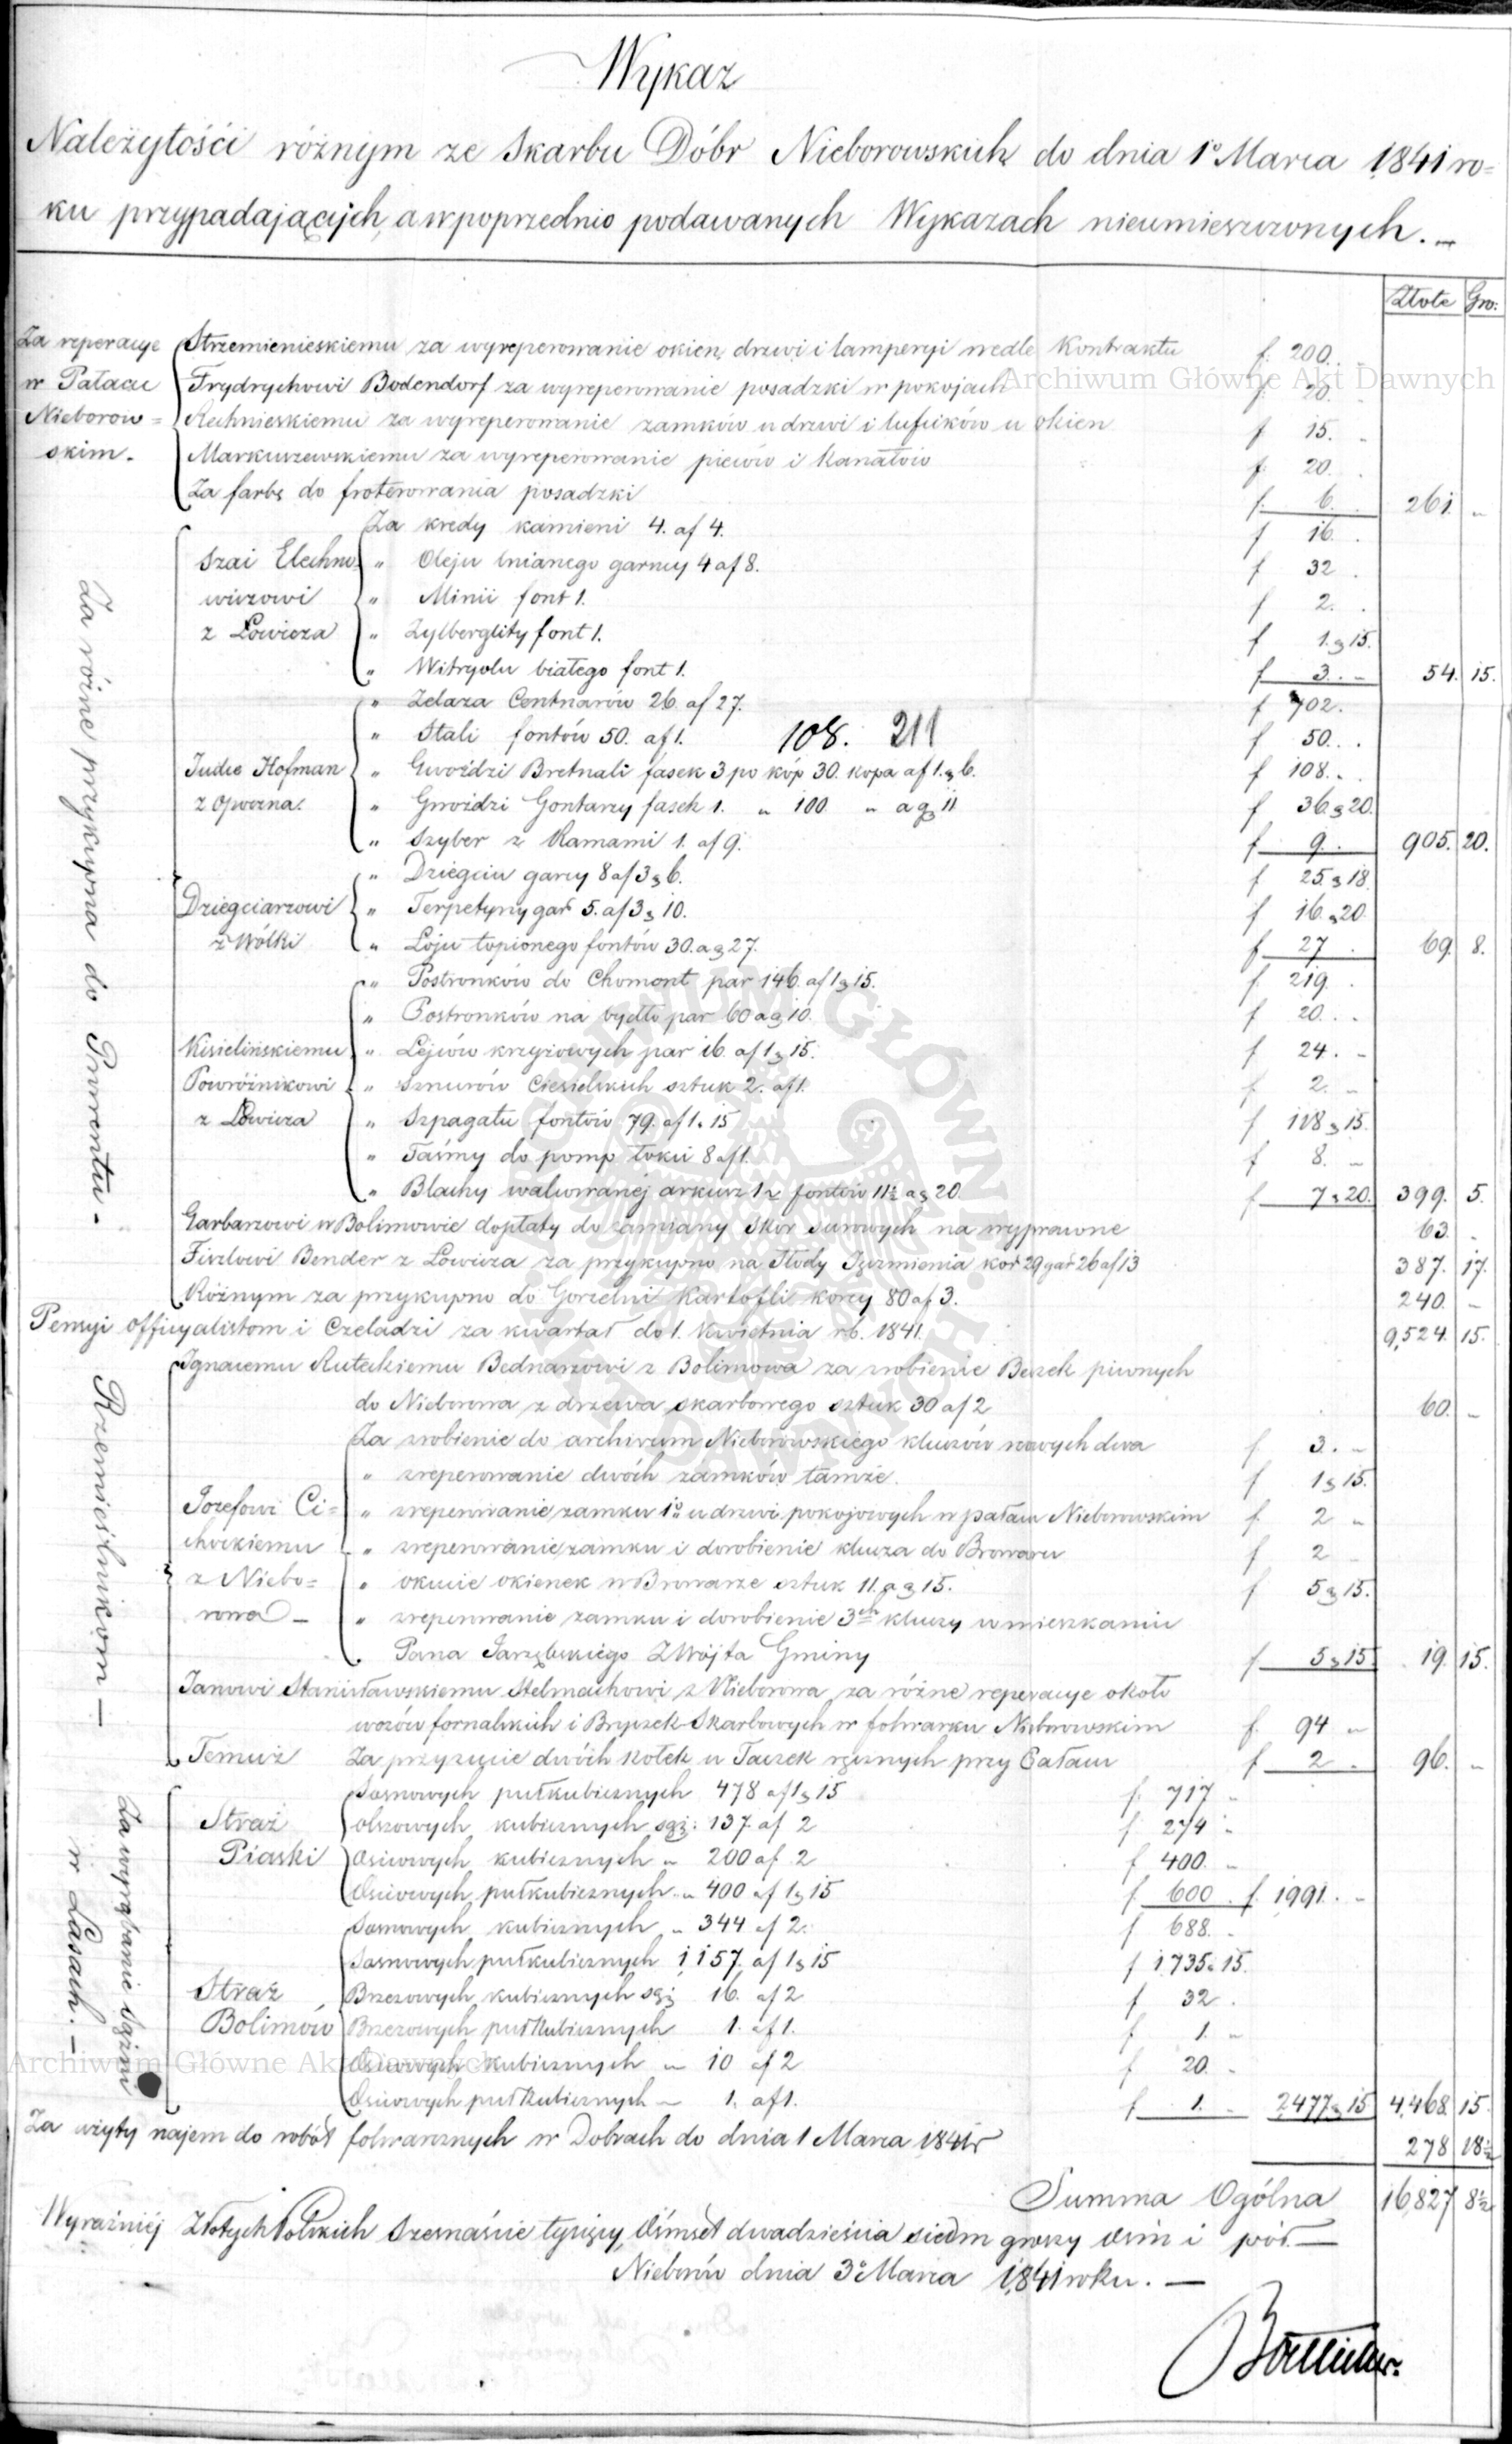 Wykaz
Należytości różnym ze Skarbu Dóbr Nieborowskich do dnia 1º Marca 1841 ro=
ku przypadających, a w poprzednio podawanych Wykazach nieumieszczonych. –
Złote Gro:
Za reperacye w Pałacu Nieborow= skim.
Strzemienieskiemu za wyreperowanie okien, drzwi i lamperyi wedle Kontraktu f. 200. .
Frydrychowi Bodendorf za wyreperowanie posadzki w pokojach f. 20.
Archiwum Główne Akt Dawnych
za wyreperowanie zamków u drzwi i lufcików u okien f 15. "
Markuszewskiemu za wyreperowanie pieców i Kanałów f. 20. .
Za farbę do froterowania posadzki f. 6. . 261. "
Za różne przykupna do Prowentu.
Szai Elechno wiczowi z Łowicza
Za kredy kamieni 4. af 4. f 16. .
" Oleju lnianego garncy 4 af 8. f 32 .
" Minii font 1. f 2. .
" Zylberglity font 1. f 1.g15.
" Witryolu białego font 1. f 3. . – 54. 15.
Judce Hofman z Opoczna.
" Żelaza Centnarów 26. af 27. f 702.
" Stali fontów 50. af 1. 108. 211 f 50. . .
" Gwoździ Bretnali fasek 3 po kóp 30. kopa af 1.g6. f 108. . .
" Gwoździ Gontarzy fasek 1. " 100 " a g 11 f 36.g20.
" Szyber z Ramami 1. af 9. f 9. . 905. 20.
Dziegciarzowi z Wólki
" Dziegciu garcy 8 af 3 g 6. f 25.g18.
" Terpetyny gar 5. af 3 g 10. f 16.g20.
" Łoju topionego fontów 30. a g 27. f 27 . 69. 8.
Kisielińskiemu Powróźnikowi z Łowicza
" Postronków do Chomont par 146. af 1 g 15. f. 219. .
" Postronków na bydło par 60 a g 10. f 20. . .
" Lejców krzyżowych par 16. af 1 g 15. f 24. –
" Sznurów Ciesielskich sztuk 2. af 1. f 2. –
" Szpagatu fontów 79. af 1. 15 f 118 g 15.
" Taśmy do pomp łokci 8 af 1. f 8. –
" Blachy walcowanéj arkusz 1 fontów 11½ a g 20 f 7 g 20. 399. 5.
Garbarzowi w Bolimowie dopłaty do zamiany Skór surowych na wyprawne 63. .
Bender z Łowicza za przykupno na Słody Jęczmienia kor 29 gar 26 af 13 387. 17.
Różnym za przykupno do Gorzelni Kartofli korcy 80 af. 3. 240. –
Pensyi Officyalistom i Czeladzi za kwartał do 1. Kwietnia rb. 1841. 9,524. 15.
Rzemieślnikom –
Ignacemu Ruteckiemu Bednarzowi z Bolimowa za zrobienie Beczek piwnych
do Nieborowa z drzewa skarbowego sztuk 30 af 2 60. –
Józefowi Ci= chockiemu z Niebo= rowa –
Za zrobienie do archiwum Nieborowskiego kluczów nowych dwa f 3. –
" zreperowanie dwóch zamków tamże. f 1 g 15.
" zreperowanie zamku 1º u drzwi pokojowych w pałacu Nieborowskim f. 2 "
" zreperowanie zamku i dorobienie klucza do Browaru f 2
" okucie okienek w Browarze sztuk 11. a g 15. f 5 g 15.
" zreperowanie zamku i dorobienie 3ch kluczy w mieszkaniu
Pana Jarzębskiego Z Wójta Gminy f 5 g 15. 19. 15.
Janowi Stanisławskiemu Stelmachowi z Nieborowa za różne reperacye około
wozów fornalskich i Bryczek Skarbowych w folwarku Nieborowskim f. 94 "
Temuż Za przyrzęcie dwóch kołek u Taczek ręcznych przy Pałacu f 2 . 96. "
Za wyrąbanie Sążni w Lasach. –
Straż Piaski
Sosnowych pułkubicznych 478 af 1 g 15 f. 717 "
olszowych kubicznych sąż. 137. af 2 f. 274 "
Osicowych kubicznych " 200 af 2 f 400. "
Osicowych pułkubicznych " 400 af 1 g 15 f 600 . f. 1991. . –
Straż Bolimów
Sosnowych kubicznych " 344 af 2. f 688. "
Sosnowych pułkubicznych 1,157 af 1 g 15 f 1,735 " 15.
Brzozowych kubicznych sąż 16. af 2 f 32 .
Brzozowych pułkubicznych 1. af 1. f 1. "
Archiwum Główne Akt Dawnych
Osicowych kubicznych " 10 af 2 f 20. "
Osicowych pułkubicznych – 1. af 1. f 1. – 2477 g 15 4,468 15.
Za użyty najem do robót folwarcznych w Dobrach do dnia 1 Marca 1841 r 278 18½
Summa Ogólna 16,827 8½
Wyraźniéj Złotych Polskich Szesnaście tysięcy, Ośmset dwadzieścia siedm groszy Ośm i pół. –
Nieborów dnia 3º Marca 1841 roku. –